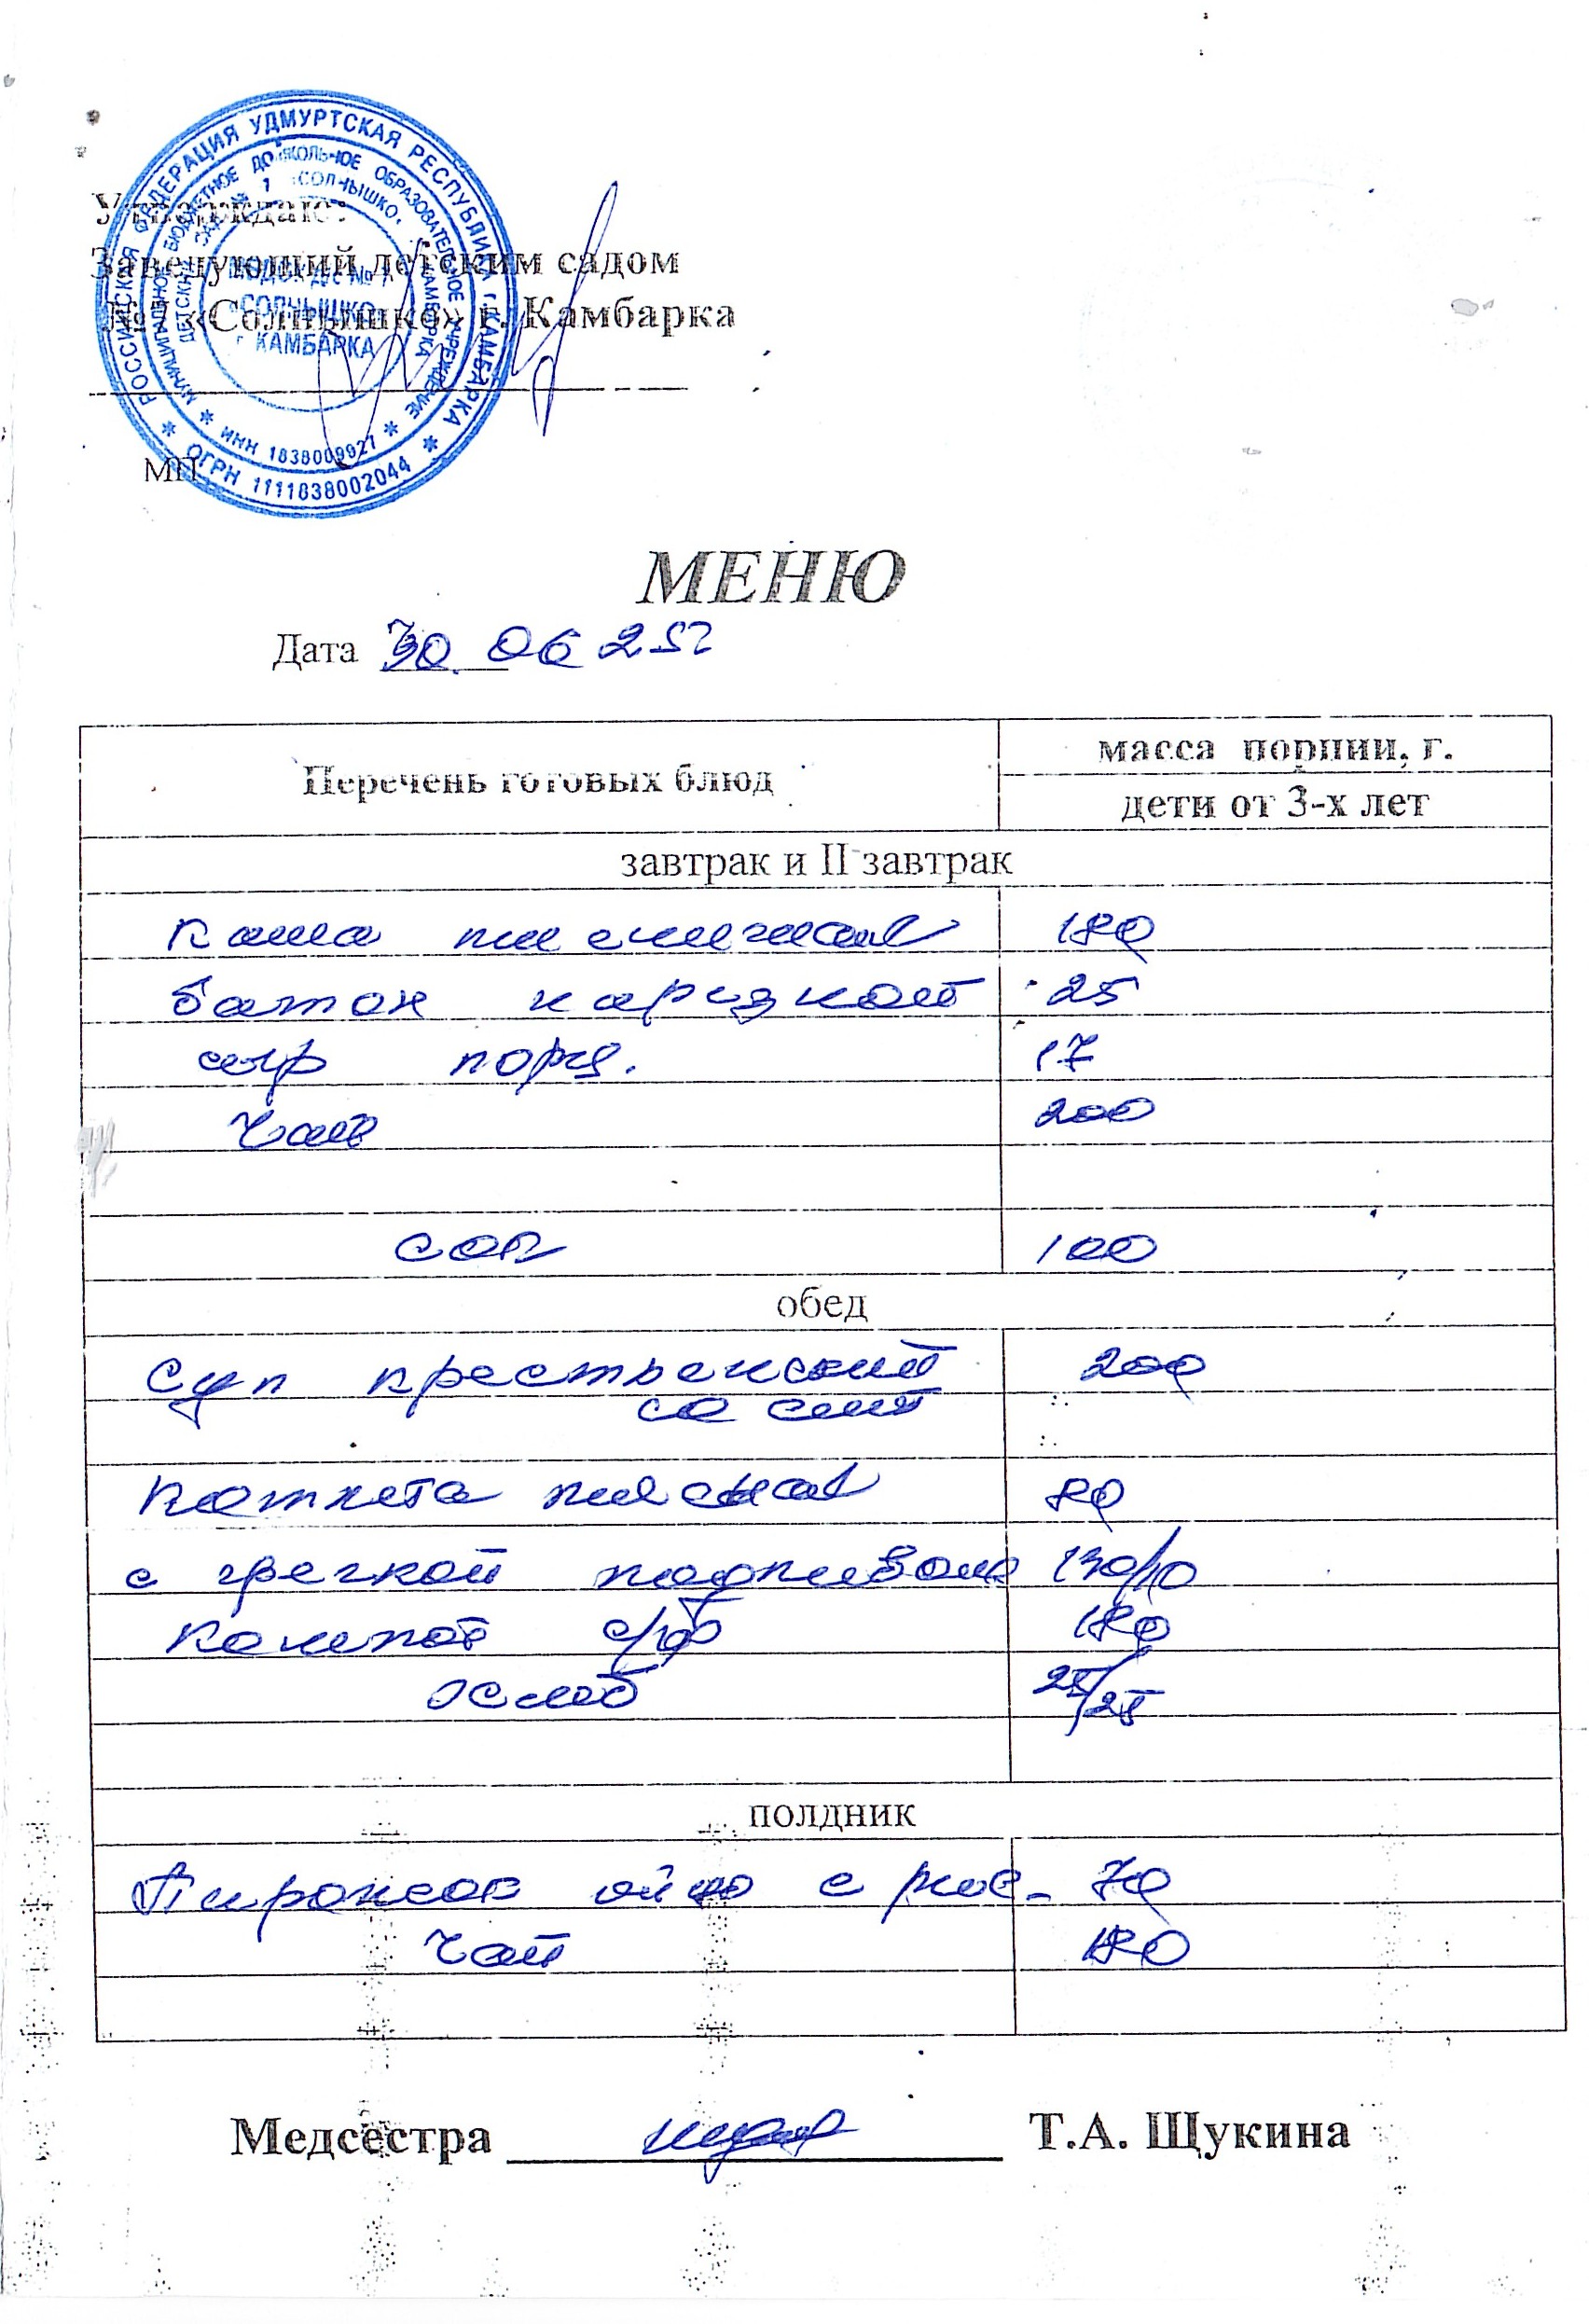 Утверждаю:
Заведующий детским садом
№1 «Солнышко» г. Камбарка
МП
РОССИЙСКАЯ ФЕДЕРАЦИЯ УДМУРТСКАЯ РЕСПУБЛИКА г. КАМБАРКА
* ОГРН 1111838002044 *
МУНИЦИПАЛЬНОЕ БЮДЖЕТНОЕ ДОШКОЛЬНОЕ ОБРАЗОВАТЕЛЬНОЕ УЧРЕЖДЕНИЕ
* ИНН 1838009927 *
ДЕТСКИЙ САД № 1 «СОЛНЫШКО» г. КАМБАРКА
№ 1
«СОЛНЫШКО»
г. КАМБАРКА
МЕНЮ
Дата 30. 06 25г
Перечень готовых блюд масса порции, г.
дети от 3-х лет
завтрак и II завтрак
Каша пшеничная 180
батон нарезной 25
сыр порц. 17
Чай 200
сок 100
обед
Суп крестьянский 200
со смет
Котлета мясная 80
с гречкой подливом 130/
Компот с/ф 180
хлеб 25/25
полдник
Пирожок с 70
Чай 180
Медсестра Т.А. Щукина